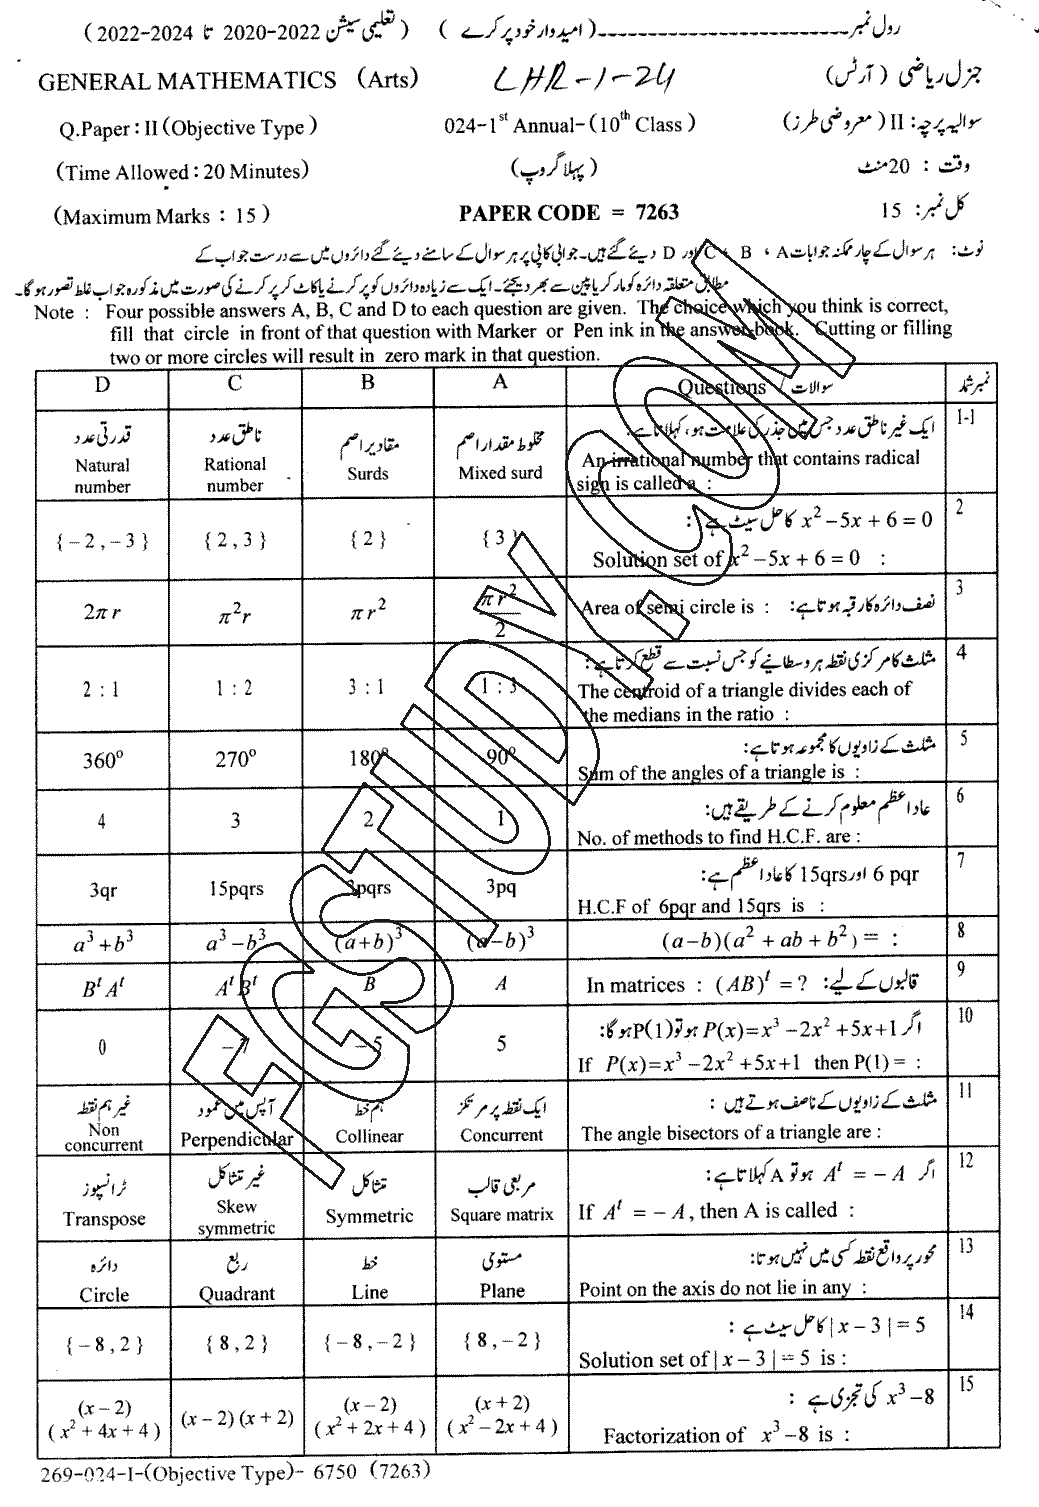 رول نمبر ـ ـ ـ ـ ـ ـ ـ ـ ـ ـ ـ ـ ـ ـ ـ ـ (امیدوار خود پر کرے) (تعلیمی سیشن 2022-2020 تا 2024-2022)
GENERAL MATHEMATICS (Arts) LHR-1-24 جنرل ریاضی (آرٹس)
Q.Paper : II (Objective Type) 024-1st Annual-(10th Class) سوالیہ پرچہ : II (معروضی طرز)
(Time Allowed : 20 Minutes) (پہلا گروپ) وقت : 20 منٹ
(Maximum Marks : 15) PAPER CODE = 7263 کل نمبر : 15
نوٹ: ہر سوال کے چار ممکنہ جوابات A ، B ، C اور D دیئے گئے ہیں۔ جوابی کاپی پر ہر سوال کے سامنے دیئے گئے دائروں میں سے درست جواب کے
مطابق متعلقہ دائرہ کو مارکر یا پین سے بھر دیجئے۔ ایک سے زیادہ دائروں کو پر کرنے یا کاٹ کر پر کرنے کی صورت میں مذکورہ جواب غلط تصور ہو گا۔
Note : Four possible answers A, B, C and D to each question are given. The choice which you think is correct,
fill that circle in front of that question with Marker or Pen ink in the answer-book. Cutting or filling
two or more circles will result in zero mark in that question.
D C B A Questions / سوالات نمبر شمار
1-1 ایک غیر ناطق عدد جس میں جذر کی علامت ہو، کہلاتا ہے:
قدرتی عدد ناطق عدد مقادیر اصم مخلوط مقدار اصم
An irrational number that contains radical
sign is called a :
Natural number Rational number Surds Mixed surd
2 x² − 5x + 6 = 0 کا حل سیٹ ہے :
{−2, −3} {2, 3} {2} {3}
Solution set of x² − 5x + 6 = 0 :
3 نصف دائرہ کا رقبہ ہوتا ہے: Area of semi circle is :
2πr π²r πr² πr²/2
4 مثلث کا مرکزی نقطہ ہر وسطانیے کو جس نسبت سے قطع کرتا ہے:
2 : 1 1 : 2 3 : 1 1 : 3
The centroid of a triangle divides each of
the medians in the ratio :
5 مثلث کے زاویوں کا مجموعہ ہوتا ہے:
360° 270° 180° 90°
Sum of the angles of a triangle is :
6 عاد اعظم معلوم کرنے کے طریقے ہیں:
4 3 2 1
No. of methods to find H.C.F. are :
7 6 pqr اور 15qrs کا عاد اعظم ہے:
3qr 15pqrs 3pqrs 3pq
H.C.F of 6pqr and 15qrs is :
8 (a−b)(a² + ab + b²) = :
a³+b³ a³−b³ (a+b)³ (a−b)³
9 قالبوں کے لیے: In matrices : (AB)ᵗ = ?
BᵗAᵗ AᵗBᵗ B A
10 اگر P(x)=x³ −2x² +5x+1 ہو تو P(1) ہو گا:
0 −7 −5 5
If P(x)=x³ −2x² +5x+1 then P(1) = :
11 مثلث کے زاویوں کے ناصف ہوتے ہیں :
غیر ہم نقطہ آپس میں عمود ہم خط ایک نقطہ پر مرتکز
Non concurrent Perpendicular Collinear Concurrent
The angle bisectors of a triangle are :
12 اگر Aᵗ = − A ہو تو A کہلاتا ہے:
ٹرانسپوز غیر متشاکل متشاکل مربعی قالب
Transpose Skew symmetric Symmetric Square matrix
If Aᵗ = − A, then A is called :
13 محور پر واقع نقطہ کسی میں نہیں ہوتا:
دائرہ ربع خط مستوی
Circle Quadrant Line Plane
Point on the axis do not lie in any :
14 |x − 3| = 5 کا حل سیٹ ہے :
{−8, 2} {8, 2} {−8, −2} {8, −2}
Solution set of |x − 3| = 5 is :
15 x³ −8 کی تجزی ہے :
(x−2)(x² + 4x + 4) (x−2)(x+2) (x−2)(x² + 2x + 4) (x+2)(x² − 2x + 4)
Factorization of x³ −8 is :
269-024-I-(Objective Type)- 6750 (7263)
FGSTUDY.COM